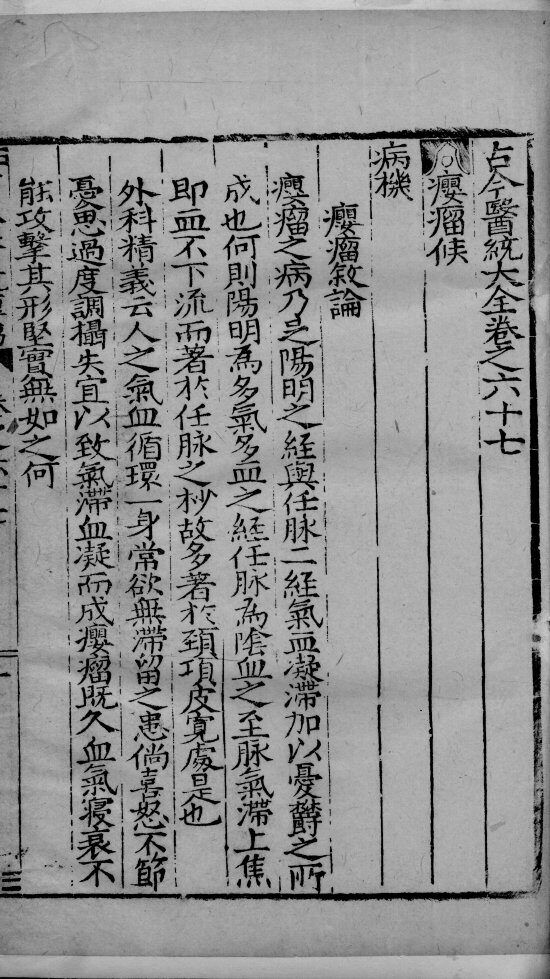 古今醫統大全卷之六十七
癭瘤候
病機
癭瘤敘論
癭瘤之病乃是陽明之経與任脉二経氣血凝滯加以憂欝之所
成也何則陽明為多氣多血之経任脉為陰血之至脉氣滯上焦
即血不下流而著於任脉之杪故多著於頚項皮寬處是也
外科精義云人之氣血循環一身常欲無滯留之患倘喜怒不節
憂思過度調攝失宜以致氣滯血凝而成癭瘤既久血氣寖衰不
能攻擊其形堅實無如之何